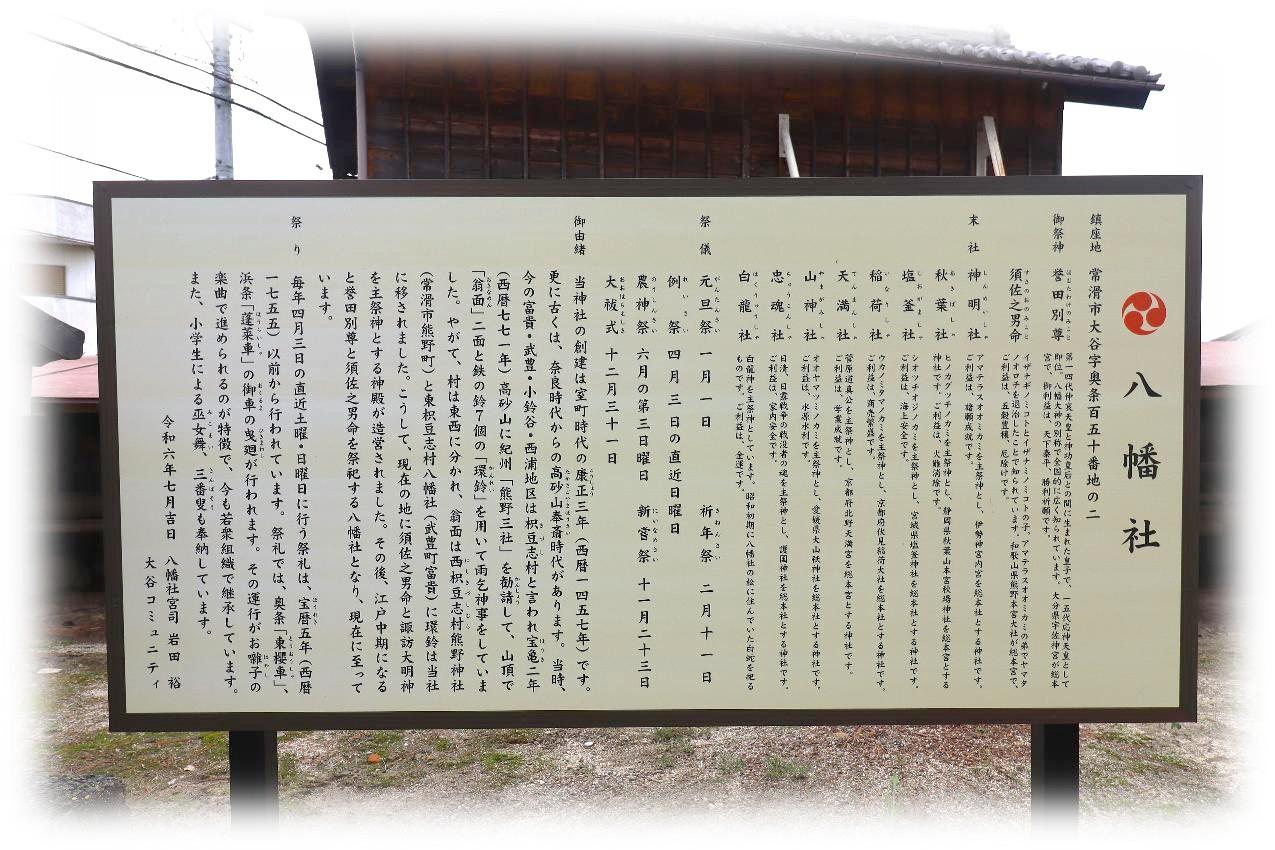 八幡社
鎮座地 常滑市大谷字奥条百五十番地の二
御祭神 誉田別尊 第一四代仲哀天皇と神功皇后との間に生まれた皇子で、一五代応神天皇として
即位。八幡大神の別称で全国的に広く知られています。大分県宇佐神宮が総本
宮で、御利益は、天下泰平、勝利祈願です。
須佐之男命 イザナギノミコトとイザナミノミコトの子。アマテラスオオミカミの弟でヤマタ
ノオロチを退治したことで知られています。和歌山県熊野本宮大社が総本宮で、
ご利益は、五穀豊穣、厄除けです。
末社 神明社 アマテラスオオミカミを主祭神とし、伊勢神宮内宮を総本社とする神社です。
ご利益は、諸願成就です。
秋葉社 ヒノカグツチノカミを主祭神とし、静岡県秋葉山本宮秋葉神社を総本宮とする
神社です。ご利益は、火難消除です。
塩釜社 シオツチオジノカミを主祭神とし、宮城県塩釜神社を総本社とする神社です。
ご利益は、海上安全です。
稲荷社 ウカノミタマノカミを主祭神とし、京都府伏見稲荷大社を総本社とする神社です。
ご利益は、商売繁盛です。
天満社 菅原道真公を主祭神とし、京都府北野天満宮を総本宮とする神社です。
ご利益は、学業成就です。
山神社 オオヤマツミノカミを主祭神とし、愛媛県大山祇神社を総本社とする神社です。
ご利益は、水源水利です。
忠魂社 日清、日露戦争の戦没者の魂を主祭神とし、護国神社を総本社とする神社です。
ご利益は、家内安全です。
白龍社 白龍神を主祭神としています。昭和初期に八幡社の松に住んでいた白蛇を祀る
ものです。ご利益は、金運です。
祭儀 元旦祭 一月一日 祈年祭 二月十一日
例祭 四月三日の直近日曜日
農神祭 六月の第三日曜日 新嘗祭 十一月二十三日
大祓式 十二月三十一日
御由緒 当神社の創建は室町時代の康正三年(西暦一四五七年)です。
更に古くは、奈良時代からの高砂山奉斎時代があります。当時、
今の富貴・武豊・小鈴谷・西浦地区は枳豆志村と言われ宝亀二年
(西暦七七一年)高砂山に紀州「熊野三社」を勧請して、山頂で
「翁面」二面と鉄の鈴7個の「環鈴」を用いて雨乞神事をしていま
した。やがて、村は東西に分かれ、翁面は西枳豆志村熊野神社
(常滑市熊野町)と東枳豆志村八幡社(武豊町富貴)に環鈴は当社
に移されました。こうして、現在の地に須佐之男命と諏訪大明神
を主祭神とする神殿が造営されました。その後、江戸中期になる
と誉田別尊と須佐之男命を祭祀する八幡社となり、現在に至って
います。
祭り 毎年四月三日の直近土曜・日曜日に行う祭礼は、宝暦五年(西暦
一七五五)以前から行われています。祭礼では、奥条「東櫻車」、
浜条「蓬莱車」の御車の曳廻が行われます。その運行がお囃子の
楽曲で進められるのが特徴で、今も若衆組織で継承しています。
また、小学生による巫女舞、三番叟も奉納しています。
令和六年七月吉日 八幡社宮司 岩田 裕
大谷コミュニティ